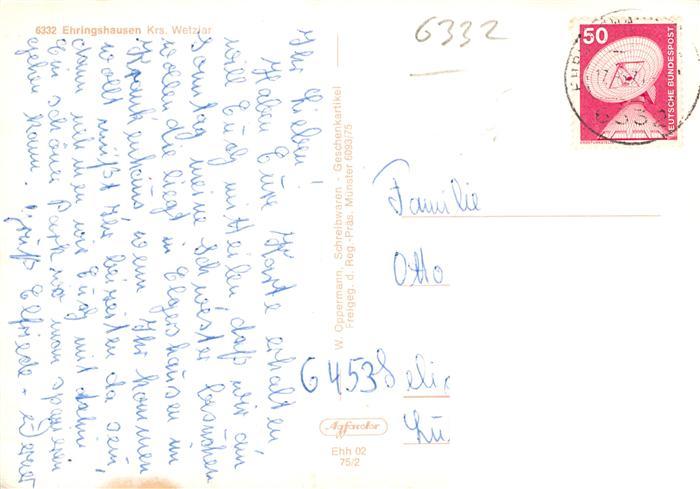 6332 Ehringshausen Krs. Wetzlar
6332
50
DEUTSCHE BUNDESPOST
Ihr Lieben!
Haben Eure Karte erhalten
will Euch mitteilen daß wir am
Sonntag meine Schwester besuchen
wollen die liegt in Elgershausen im
Krankenhaus wenn Ihr kommen
wollt müßt Ihr beizeiten da sein
dann nehmen wir Euch mit dahin
Ein schöner Park wo man spazieren
gehen kann. Gruß Elfriede +
W. Oppermann, Schreibwaren - Geschenkartikel
Freigeg. d. Reg.-Präs. Münster 6093/75
Familie
Otto
6453 Selig
Agfacolor
Ehh 02
75/2